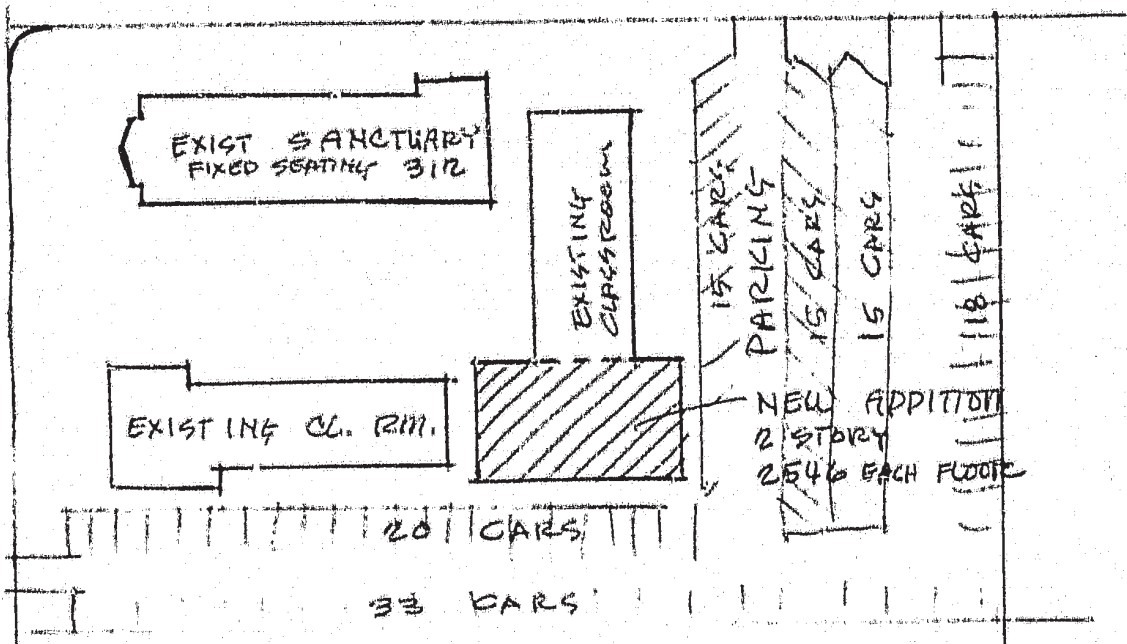 EXIST SANCTUARY
FIXED SEATING 312
EXISTING
CLASSROOM
15 CARS
PARKING
15 CARS
15 CARS
18 CARS
EXISTING CL. RM.
NEW ADDITION
2 STORY
2546 EACH FLOOR
20 CARS
33 CARS